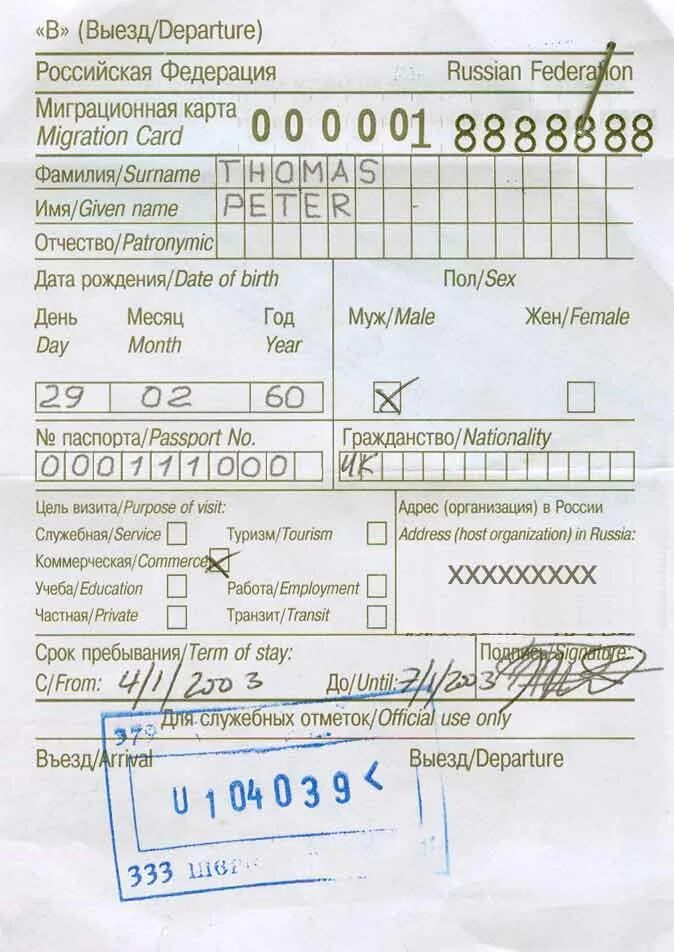 «В» (Выезд/Departure)
Российская Федерация Russian Federation
Миграционная карта
Migration Card
000001 8888888
Фамилия/Surname THOMAS
Имя/Given name PETER
Отчество/Patronymic
Дата рождения/Date of birth Пол/Sex
День Месяц Год Муж/Male Жен/Female
Day Month Year
29 02 60
№ паспорта/Passport No. Гражданство/Nationality
000111000 UK
Цель визита/Purpose of visit: Адрес (организация) в России
Служебная/Service Туризм/Tourism Address (host organization) in Russia:
Коммерческая/Commerce
XXXXXXXXX
Учеба/Education Работа/Employment
Частная/Private Транзит/Transit
Срок пребывания/Term of stay: Подпись/Signature:
С/From: 4/1/2003 До/Until: 7/1/2003
Для служебных отметок/Official use only
379
Въезд/Arrival Выезд/Departure
104039 <
333